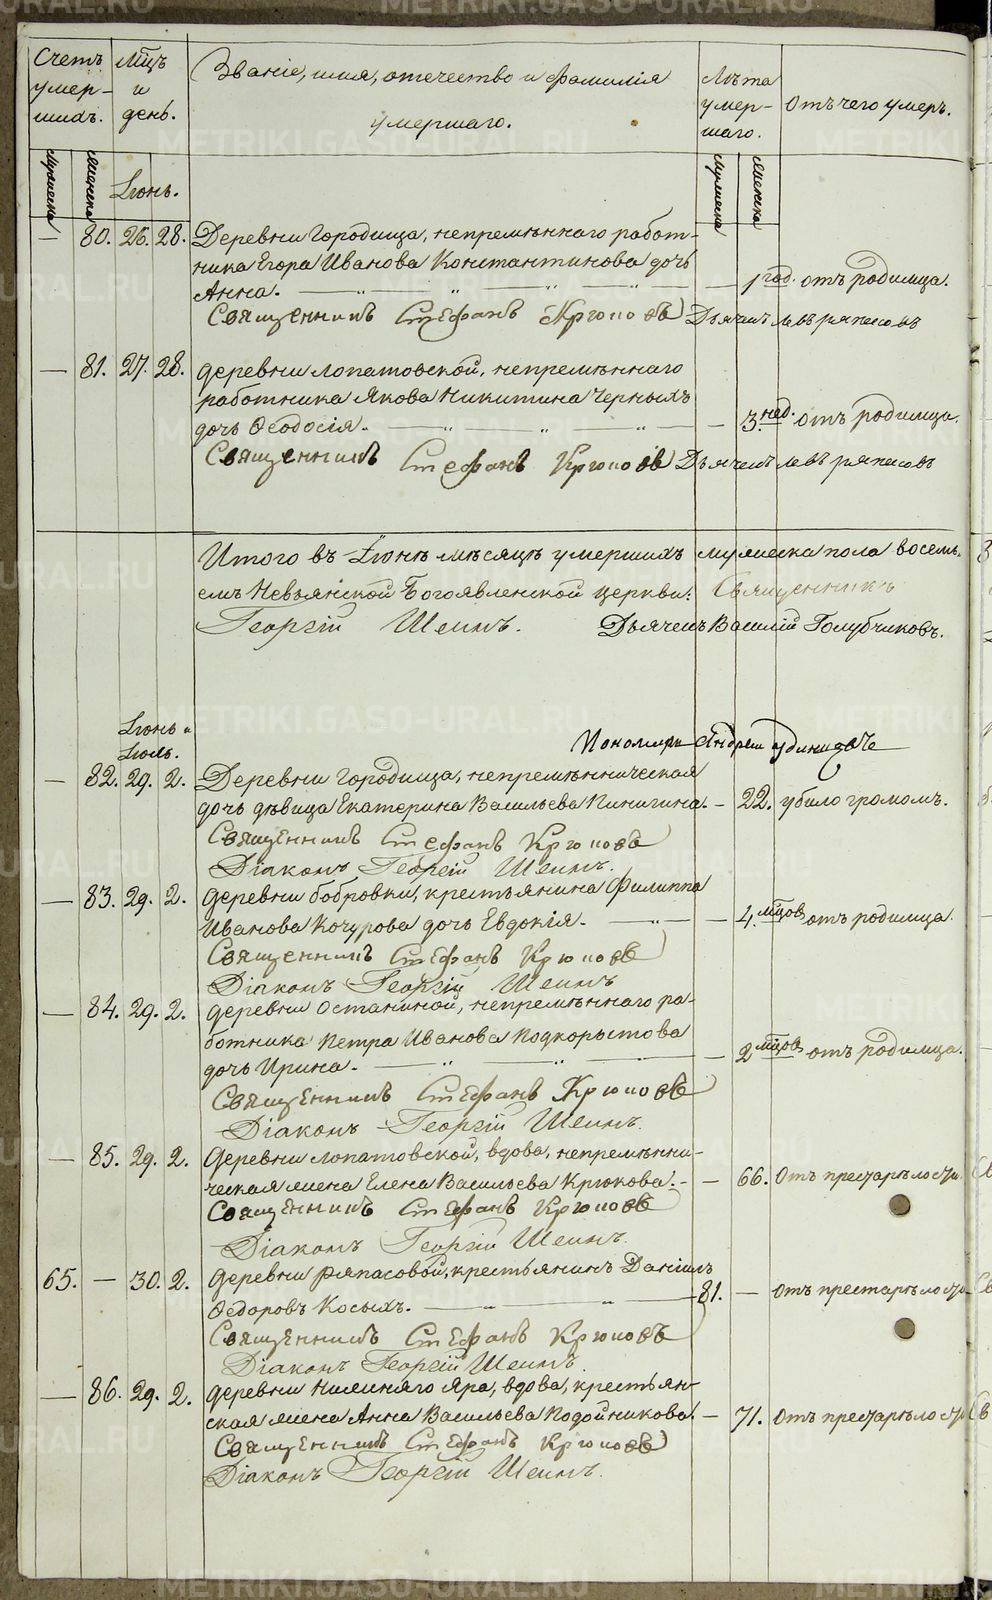 Счетъ умер-шихъ.
Мцъ и день.
Званіе, имя, отечество и фамилія умершаго.
Лѣта умер-шаго.
Отъ чего умеръ.
Мужеска Женска Іюнь. Мужеска Женска
— 80. 26. 28. Деревни Городища, непремѣннаго работ-
ника Егора Иванова Константинова дочь
Анна. — 1 год. отъ родимца.
Священникъ Стефанъ Крюковъ Дьячекъ Левъ Ряпасовъ
— 81. 27. 28. деревни Лопатовской, непремѣннаго
работника Якова Никитина Черныхъ
дочь Ѳеодосія. — 3 нед. отъ родимца.
Священникъ Стефанъ Крюковъ Дьячекъ Левъ Ряпасовъ
Итого въ Іюнѣ мѣсяцѣ умершихъ мужеска пола восемь.
емъ Невьянской Богоявленской церкви: Священникъ
Георгій Шеинъ. Дьячекъ Василій Голубчиковъ.
Іюнь и
Іюль.
Пономарь Андрей
— 82. 29. 2. Деревни Городища, непремѣнническая
дочь дѣвица Екатерина Васильева Пинигина. — 22. убило громомъ.
Священникъ Стефанъ Крюковъ
Діаконъ Георгій Шеинъ.
— 83. 29. 2. деревни Бобровки, крестьянина Филиппа
Иванова Кочурова дочь Евдокія. — 4. мцов отъ родимца.
Священникъ Стефанъ Крюковъ
Діаконъ Георгій Шеинъ
— 84. 29. 2. деревни Останиной, непремѣннаго ра-
ботника Петра Иванова Подкорытова
дочь Ирина. — 2 мцов отъ родимца.
Священникъ Стефанъ Крюковъ
Діаконъ Георгій Шеинъ.
— 85. 29. 2. Деревни Лопатовской, вдова, непремѣнни-
ческая жена Елена Васильева Крюкова. — 66. Отъ престарѣлости
Священникъ Стефанъ Крюковъ
Діаконъ Георгій Шеинъ.
65. — 30. 2. Деревни Ряпасовой, крестьянинъ Даніилъ
Ѳедоровъ Косыхъ. 81. — отъ престарѣлости
Священникъ Стефанъ Крюковъ
Діаконъ Георгій Шеинъ.
— 86. 29. 2. деревни Нижняго Яра, вдова, крестьян-
ская жена Анна Васильева Подойникова. — 71. Отъ престарѣлости
Священникъ Стефанъ Крюковъ
Діаконъ Георгій Шеинъ.
METRIKI.GASO-URAL.RU